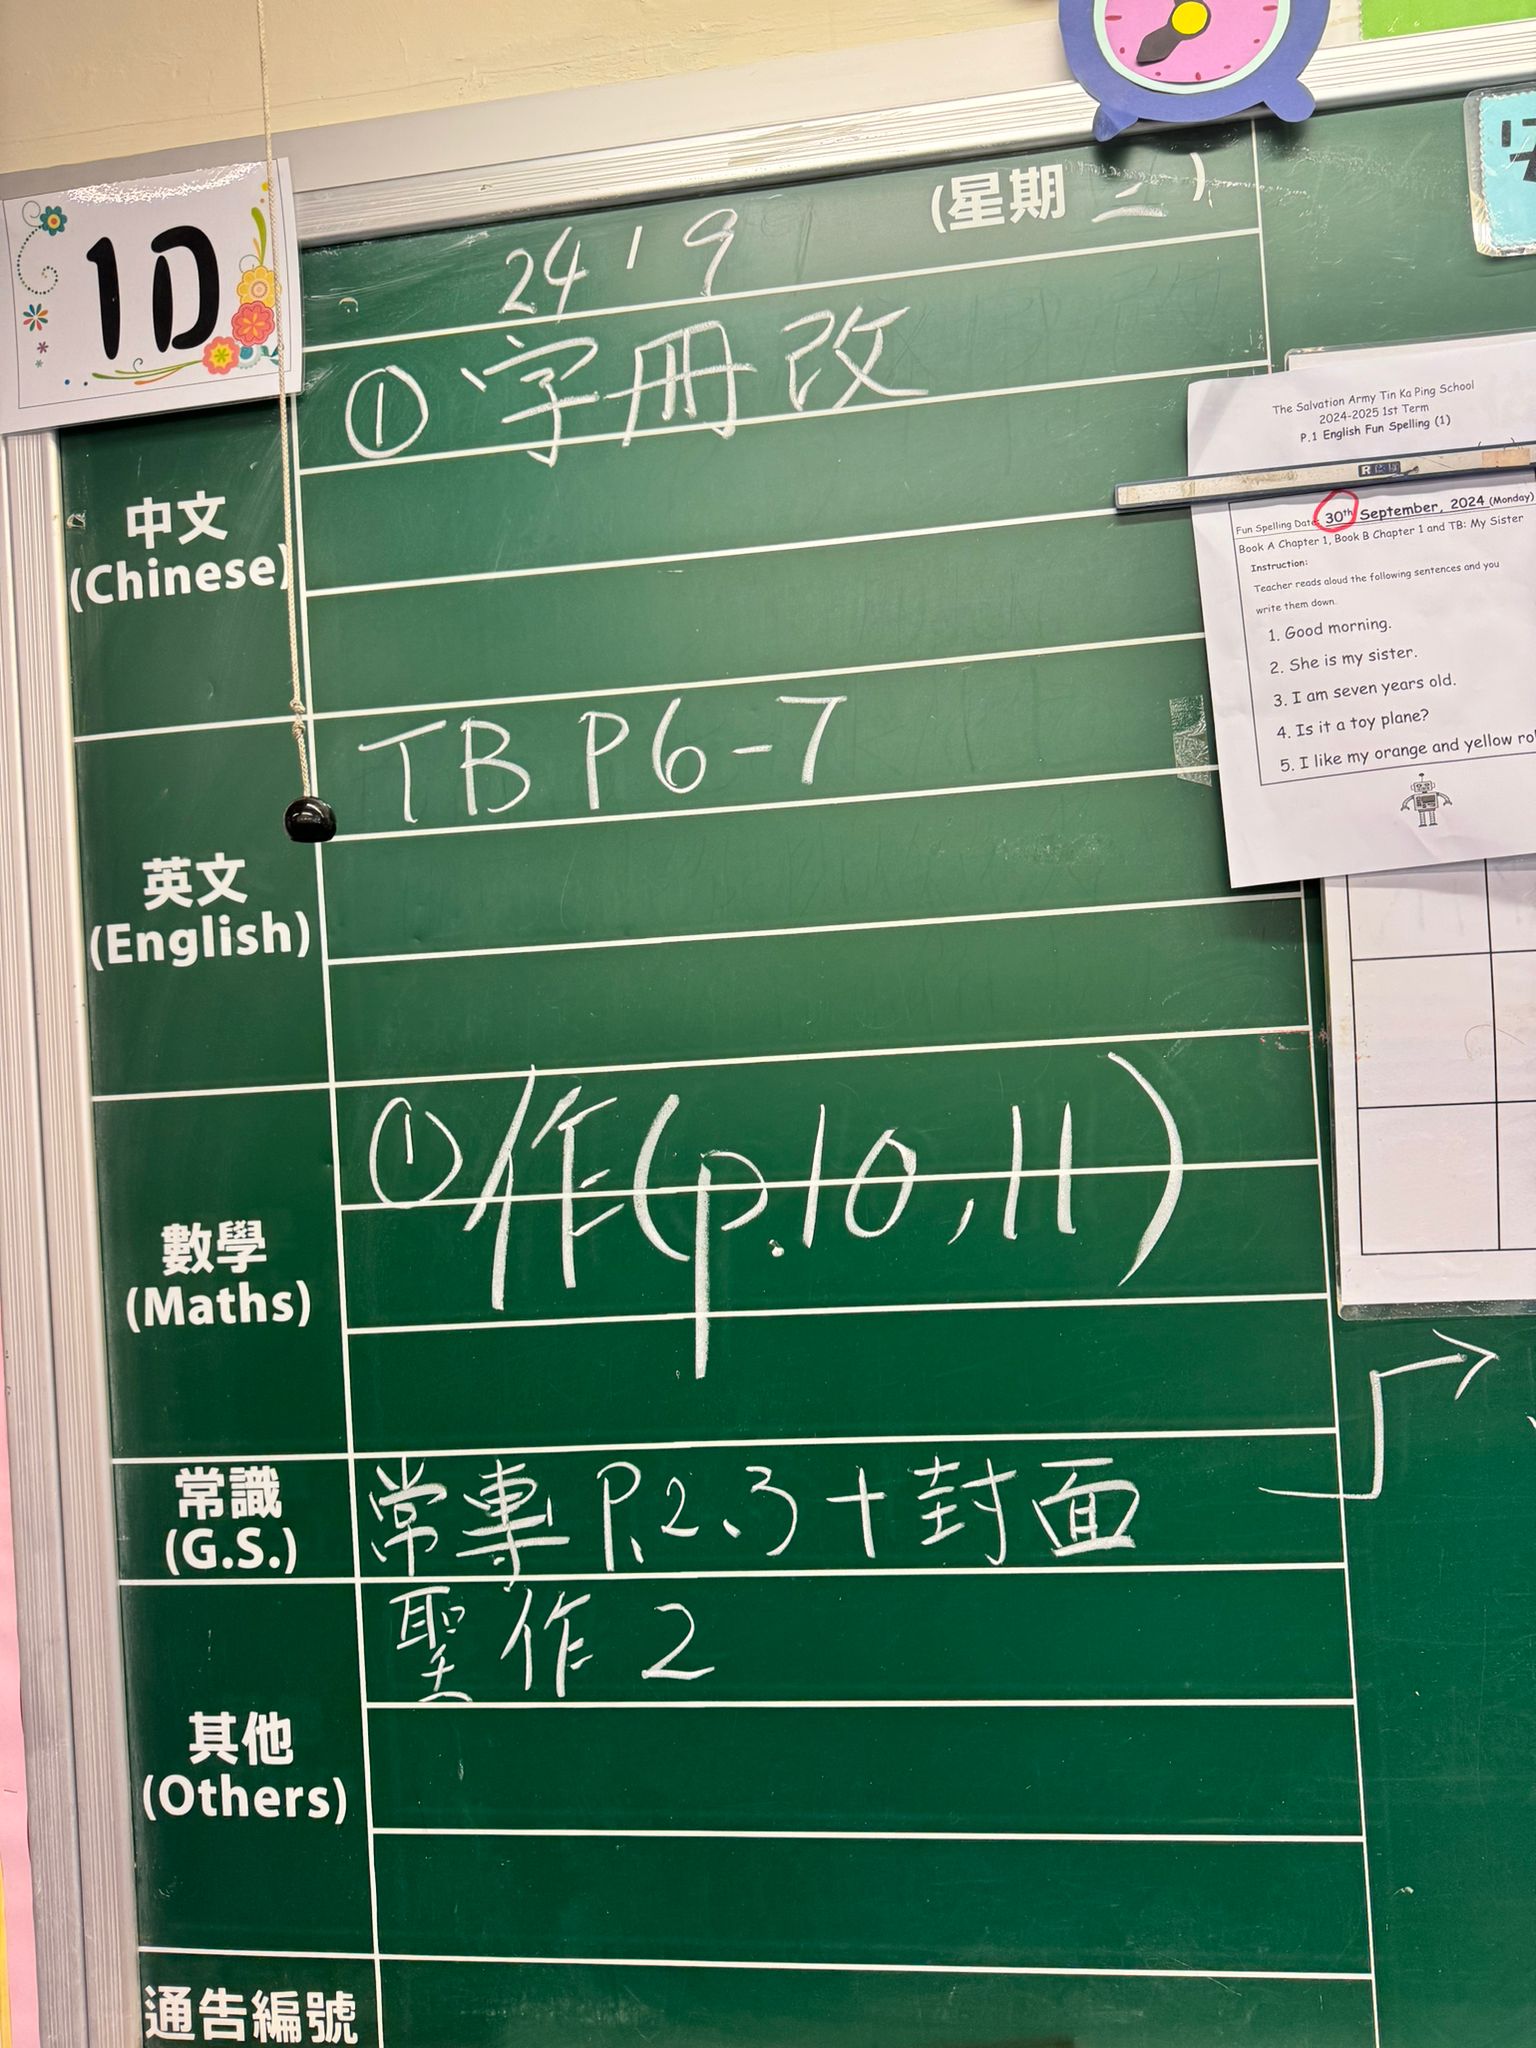 1D
(星期 二)
24 / 9
中文
(Chinese)
① 字冊改
英文
(English)
TB P6-7
數學
(Maths)
① 作(p.10,11)
常識
(G.S.)
常專 P.2、3+封面
其他
(Others)
聖作 2
通告編號
The Salvation Army Tin Ka Ping School
2024-2025 1st Term
P.1 English Fun Spelling (1)
Fun Spelling Date: 30th September, 2024 (Monday)
Book A Chapter 1, Book B Chapter 1 and TB: My Sister
Instruction:
Teacher reads aloud the following sentences and you
write them down.
1. Good morning.
2. She is my sister.
3. I am seven years old.
4. Is it a toy plane?
5. I like my orange and yellow